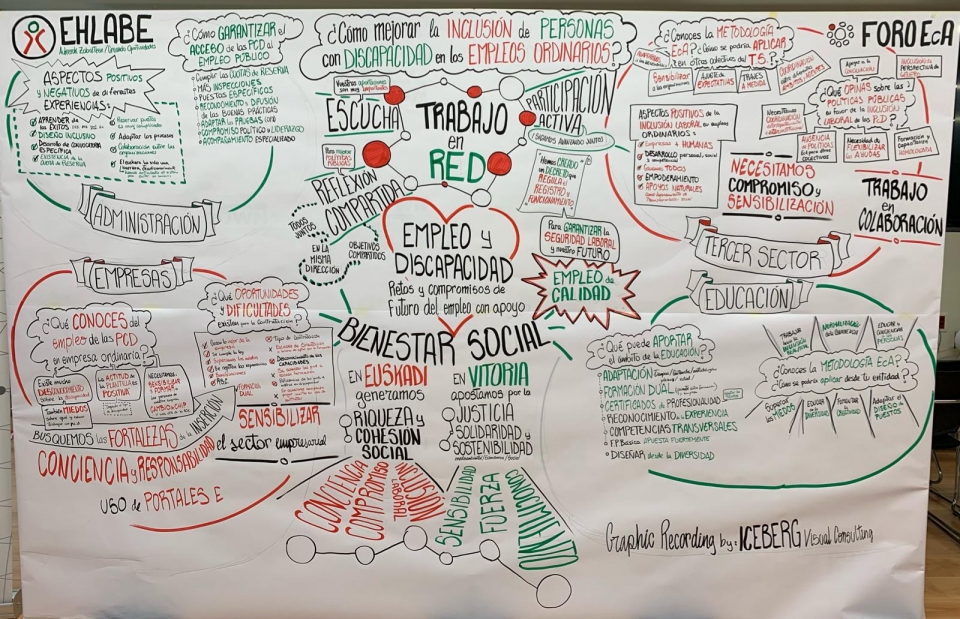 EHLABE
FORO EcA
¿Cómo GARANTIZAR el
ACCESO de las PCD al
EMPLEO PÚBLICO?
Cumplir las CUOTAS DE RESERVA
MÁS INSPECCIONES
PUESTOS ESPECÍFICOS
RECONOCIMIENTO y DIFUSIÓN
de las BUENAS PRÁCTICAS
ADAPTAR las PRUEBAS
COMPROMISO POLÍTICO y LIDERAZGO
ACOMPAÑAMIENTO ESPECIALIZADO
ASPECTOS POSITIVOS
y NEGATIVOS de diferentes
EXPERIENCIAS
APRENDER de
los ÉXITOS
DISEÑO INCLUSIVO
Desarrollo de CONVOCATORIAS
ESPECÍFICA
EXISTENCIA de la
CUOTA de RESERVA
Adaptar los procesos
ADMINISTRACIÓN
¿Cómo mejorar la INCLUSIÓN de PERSONAS
con DISCAPACIDAD en los EMPLEOS ORDINARIOS?
Vuestras aportaciones
son muy importantes
ESCUCHA
TRABAJO
en
RED
PARTICIPACIÓN
ACTIVA
¡SIGAMOS AVANZANDO JUNTOS!
Para mejorar
POLÍTICAS
PÚBLICAS
REFLEXIÓN
COMPARTIDA
Hemos CREADO
un DECRETO que
REGULA el
REGISTRO y
FUNCIONAMIENTO
TODOS
JUNTOS
EN LA
MISMA
DIRECCIÓN
OBJETIVOS
COMPARTIDOS
EMPLEO y
DISCAPACIDAD
Retos y compromisos de
Futuro del empleo con apoyo
Para GARANTIZAR la
SEGURIDAD LABORAL
y nuestro FUTURO
EMPLEO de
CALIDAD
¿Conoces la METODOLOGÍA
EcA? ¿Cómo se podría APLICAR
en otros colectivos del T.S.?
Sensibilizar
AJUSTE de
EXPECTATIVAS
TRAJES A
MEDIDA
Apoyo a la
INCLUSIÓN de
PERSPECTIVA de
GÉNERO
¿QUÉ OPINAS sobre las
POLÍTICAS PÚBLICAS
en favor de la INCLUSIÓN
LABORAL de las PcD?
ASPECTOS POSITIVOS de la
INCLUSIÓN LABORAL en empleos
ORDINARIOS
Empresas + HUMANAS
DESARROLLO personal, social
y competencial
EMPODERAMIENTO
APOYOS NATURALES
AUSENCIA
de POLÍTICAS
EcA para otros
COLECTIVOS
Necesidad de
FLEXIBILIZAR
las AYUDAS
Formación y
HOMOLOGADA
NECESITAMOS
COMPROMISO y
SENSIBILIZACIÓN
TRABAJO
en
COLABORACIÓN
TERCER SECTOR
EMPRESAS
¿Qué CONOCES del
empleo de las PCD
en empresa ordinaria?
Existe mucho
DESCONOCIMIENTO
sobre la discapacidad
La ACTITUD de
la PLANTILLA es
POSITIVA
NECESITAMOS
SENSIBILIZAR
CAMBIO de CHIP
También MIEDOS
¿Qué OPORTUNIDADES
y DIFICULTADES
existen para la Contratación?
FORMACIÓN
DUAL
BUSQUEMOS las FORTALEZAS de la INSERCIÓN
SENSIBILIZAR
el sector empresarial
CONCIENCIA y RESPONSABILIDAD
USO de PORTALES E
BIENESTAR SOCIAL
EN EUSKADI
generamos
RIQUEZA y
COHESIÓN
SOCIAL
EN VITORIA
apostamos por la
JUSTICIA
SOLIDARIDAD y
SOSTENIBILIDAD
CONCIENCIA
COMPROMISO
INCLUSIÓN
LABORAL
SENSIBILIDAD
FUERZA
CONOCIMIENTO
EDUCACIÓN
¿Qué puede APORTAR
el ámbito de la EDUCACIÓN?
ADAPTACIÓN
FORMACIÓN DUAL
CERTIFICADOS de PROFESIONALIDAD
RECONOCIMIENTO de la EXPERIENCIA
COMPETENCIAS TRANSVERSALES
FP Básica APUESTA FUERTEMENTE
DISEÑAR desde la DIVERSIDAD
¿Conoces la METODOLOGÍA EcA?
¿Cómo se podría aplicar desde tu entidad?
Superar
los MIEDOS
EDUCAR
en la
DIVERSIDAD
FOMENTAR
la
DIVERSIDAD
Adaptar el
DISEÑO de
PUESTOS
Graphic Recording by: ICEBERG Visual Consulting